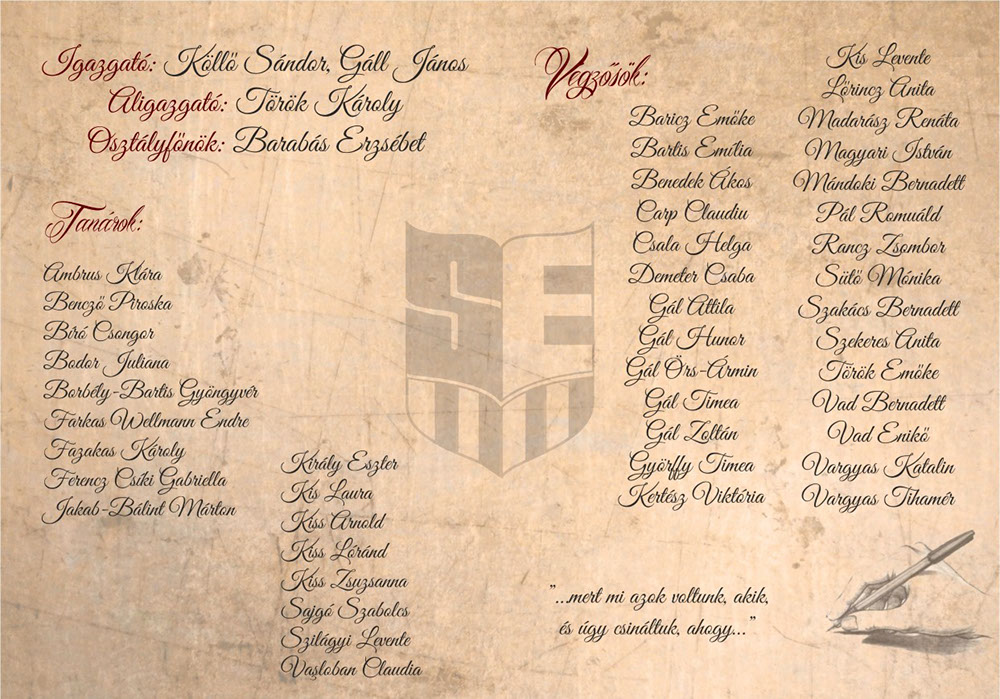 Igazgató: Köllő Sándor, Gáll János
Aligazgató: Török Károly
Osztályfőnök: Barabás Erzsébet
Tanárok:
Ambrus Klára
Bencző Piroska
Bíró Csongor
Bodor Juliana
Borbély-Bartis Gyöngyvér
Farkas Wellmann Endre
Fazakas Károly
Ferencz Csíki Gabriella
Jakab-Bálint Márton
Király Eszter
Kis Laura
Kiss Arnold
Kiss Lóránd
Kiss Zsuzsanna
Sajgó Szabolcs
Szilágyi Levente
Vașloban Claudia
SE
Végzősök:
Baricz Emőke
Bartis Emília
Benedek Ákos
Carp Claudiu
Csala Helga
Demeter Csaba
Gál Attila
Gál Hunor
Gál Örs-Ármin
Gál Tímea
Gál Zoltán
Györffy Tímea
Kertész Viktória
Kis Levente
Lőrincz Anita
Madarász Renáta
Magyari István
Mándoki Bernadett
Pál Romuáld
Rancz Zsombor
Sütő Mónika
Szakács Bernadett
Szekeres Anita
Török Emőke
Vad Bernadett
Vad Enikő
Vargyas Katalin
Vargyas Tihamér
"...mert mi azok voltunk, akik,
és úgy csináltuk, ahogy..."